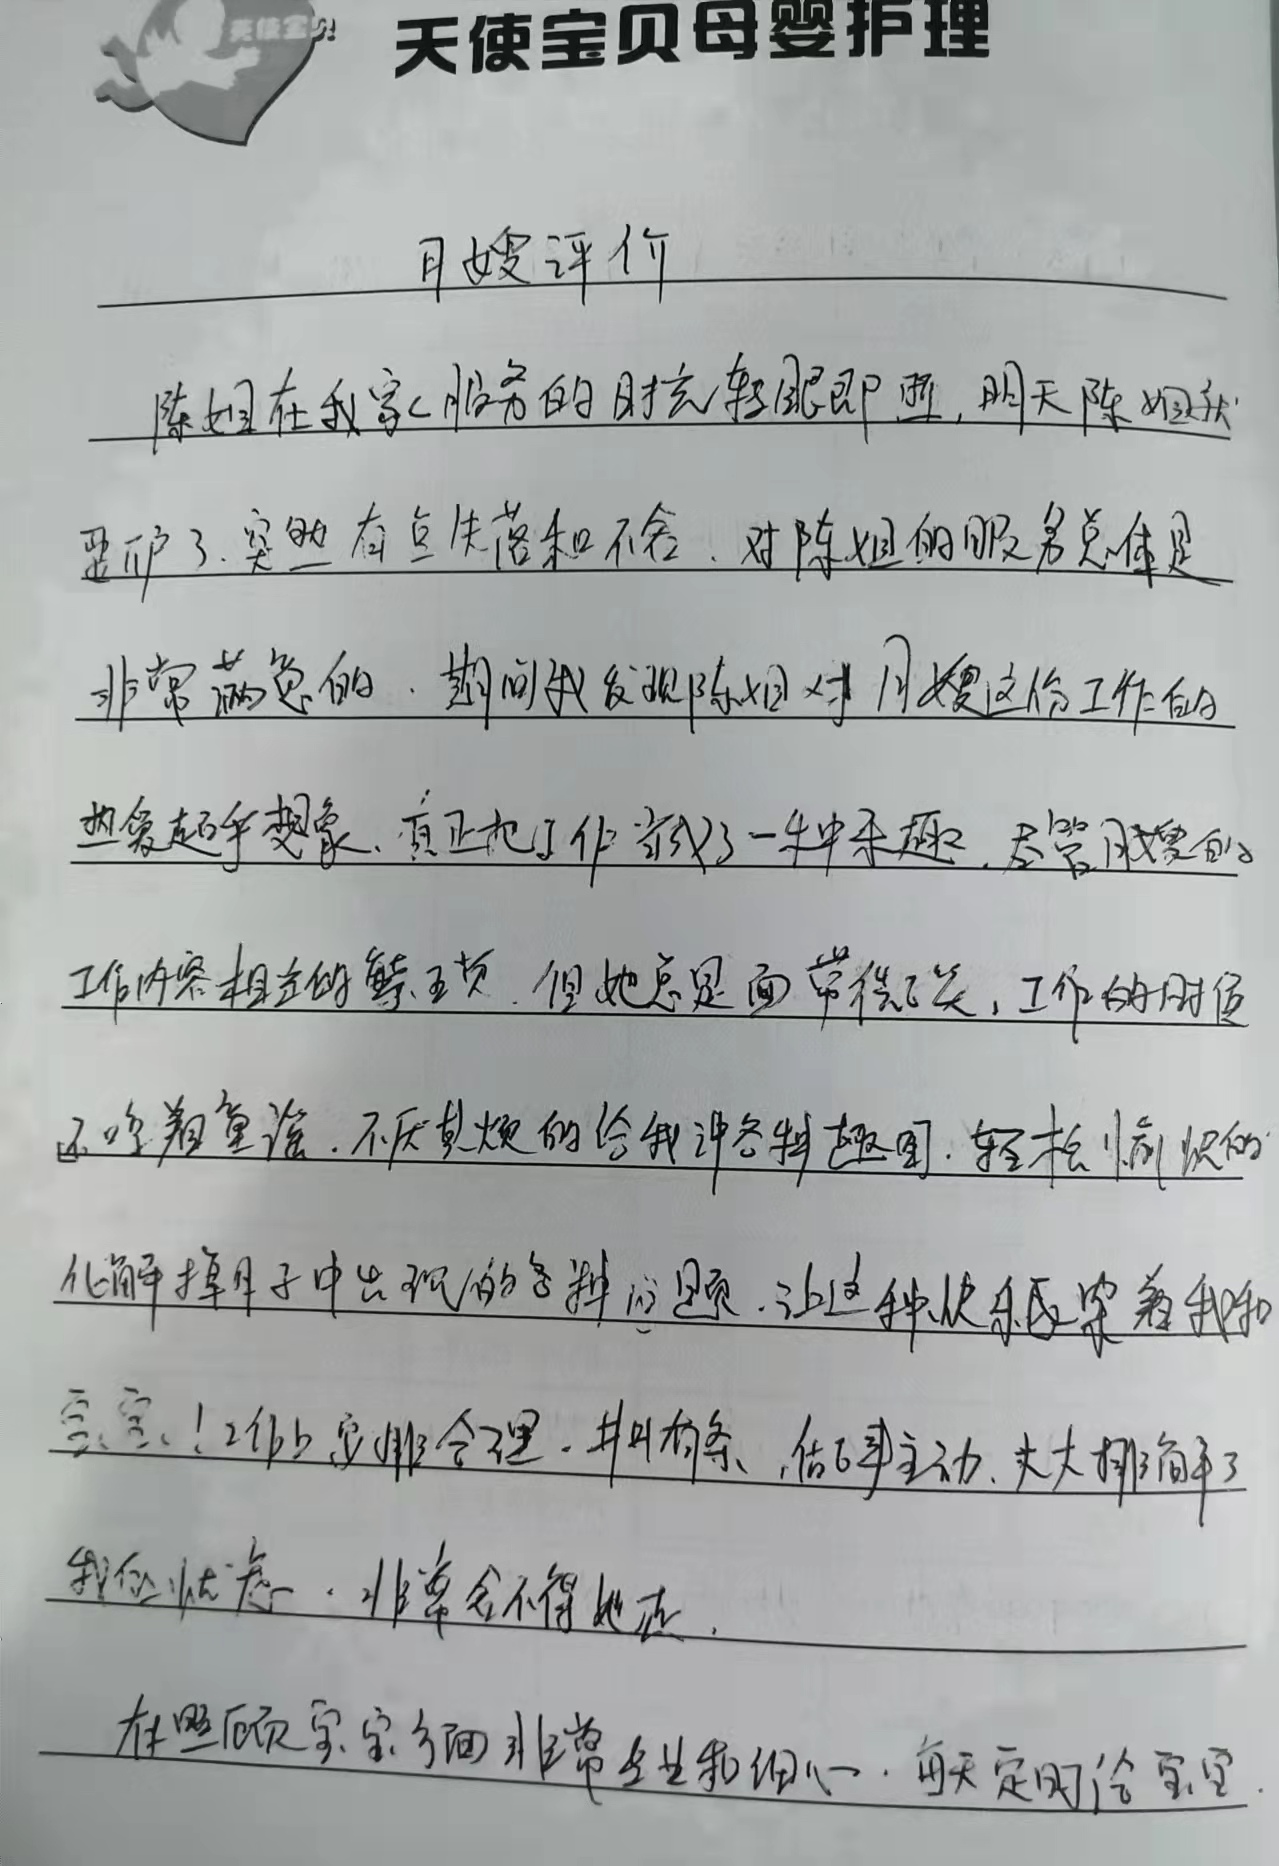 天使宝贝
天使宝贝母婴护理
月嫂评价
陈姐在我家服务的时光转眼即逝,明天陈姐就
要下户了.突然有点失落和不舍.对陈姐的服务总体是
非常满意的.期间我发现陈姐对月嫂这份工作的
热爱超乎想象、真正把工作当成了一种乐趣.尽管月嫂的
工作内容相当的繁琐.但她总是面带微笑,工作的时候
还哼着童谣.不厌其烦的给我讲各种趣闻.轻松愉快的
化解掉月子中出现的各种问题.让这种快乐感染着我和
宝宝!工作上安排合理.井井有条、做事主动、大大排解了
我的忧虑.非常舍不得她走.
在照顾宝宝方面非常专业和细心.每天定时给宝宝